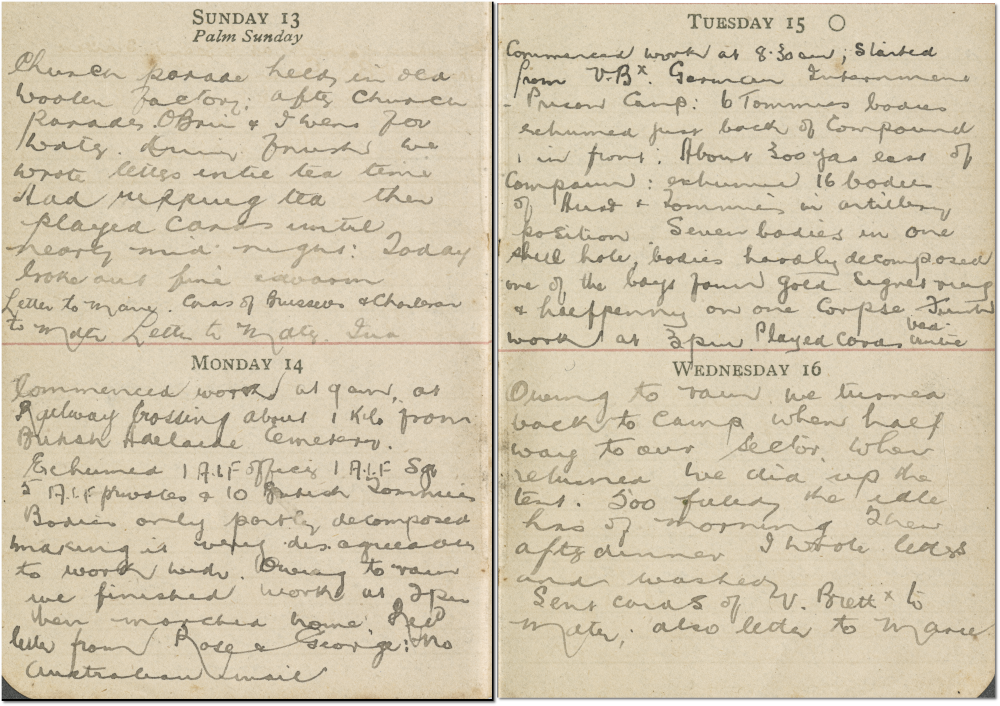 SUNDAY 13
Palm Sunday
Church parade held in old
woolen factory, after Church
Parade. OBrien & I went for
walk. during finish we
wrote letters until tea time
Had ripping tea then
played cards until
nearly mid night: Today
broke out fine & warm
Letter to Marie. Cards of Brussels & Charleroi
to Mater Letter to Mater.
MONDAY 14
Commenced work at 9 am, at
Railway Crossing about 1 Kilo from
British Adelaide Cemetery.
Exhumed 1 A.I.F officer 1 A.I.F Sgt
5 A.I.F privates & 10 British Tommies
Bodies only partly decomposed
making it very disagreeable
to work with. Owing to rain
we finished work at 2pm
then marched home. Recd
letter from Rose & George: no
Australian mail
TUESDAY 15
Commenced work at 8.30 am; Started
from V.Bx. German Internment
Prison Camp: 6 Tommies bodies
exhumed just back of Compound
1 in front. About 300 yds east of
Compound: exhumed 16 bodies
of & Tommies in artillery
position Seven bodies in one
shell hole, bodies hardly decomposed
one of the boys found gold signet ring
& halfpenny on one Corpse Finished
work at 3pm Played Cards until bed
WEDNESDAY 16
Owing to rain we turned
back to Camp when half
way to our Sector. When
returned we did up the
tent. Soo filled the idle
hrs of morning Then
after dinner I wrote letters
and washed
Sent cards of V. Brett x to
Mater, also letter to Marie